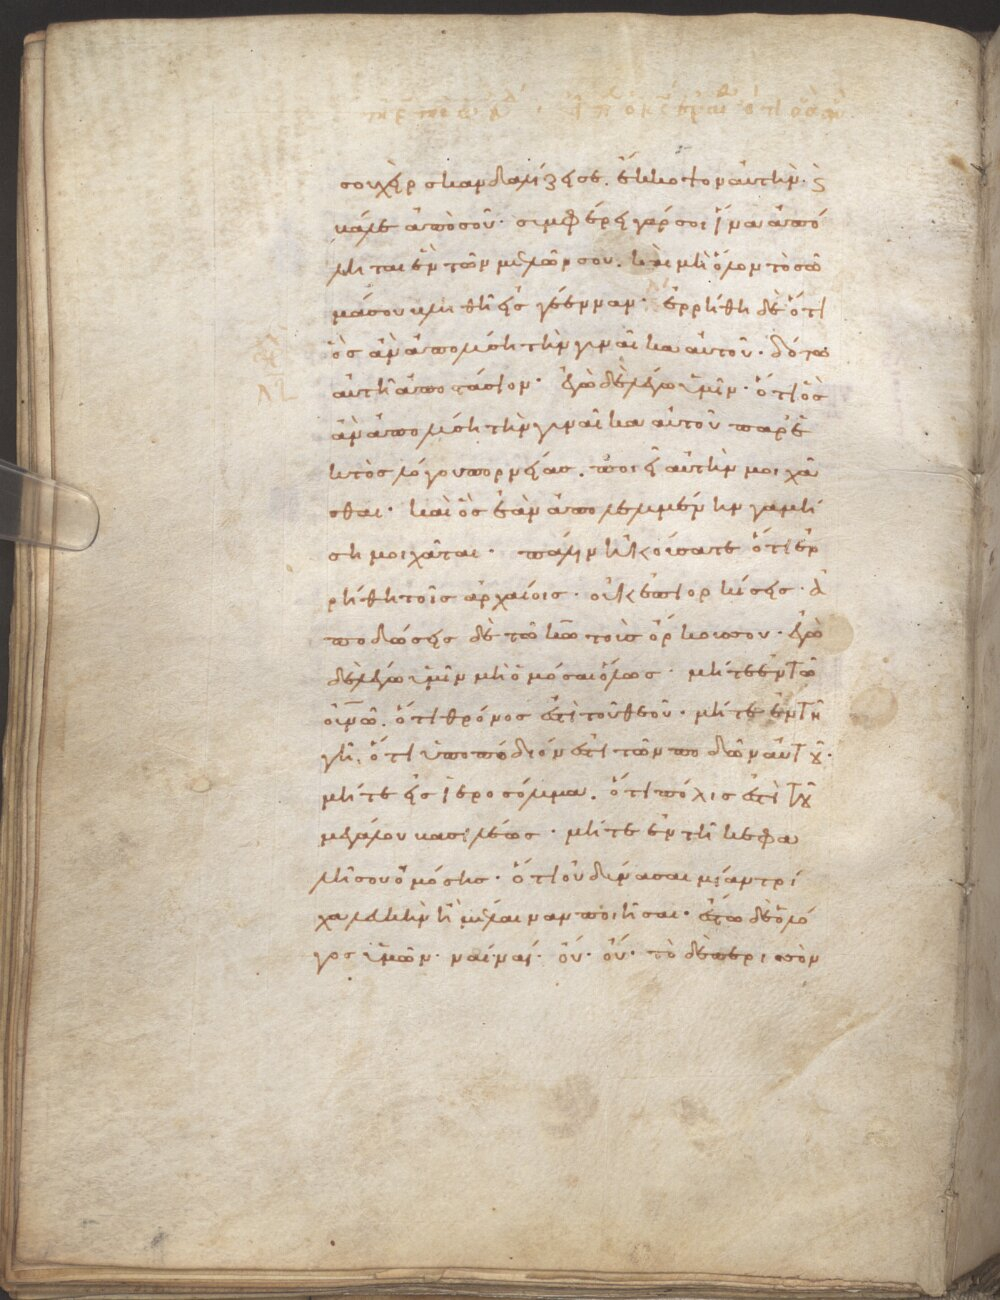 σου χεὶρ σκανδαλίζει σε. ἔκκοψον αὐτὴν· ϗ
βάλε ἀπὸ σοῦ· συμφέρει γάρ σοι ἵνα ἀπό
ληται ἓν τῶν μελῶν σου. καὶ μὴ ὅλον τὸ σῶ
μά σου βληθῆ εἰς γέενναν· ἐρρήθη δὲ ὅτι
ὃς ἂν ἀπολύση τὴν γυναῖκα αὐτοῦ· δότω
αὐτῆ ἀποστάσιον· ἐγὼ δὲ λέγω ὑμῖν· ὅτι ὃς
ἂν ἀπολύση τὴν γυναῖκα αὐτοῦ παρε
κτὸς λόγου πορνείας. ποιεῖ αὐτὴν μοιχᾶ
σθαι· καὶ ὃς ἐὰν ἀπολελυμένην γαμή
ση μοιχᾶται· πάλιν ἠκούσατε ὅτι ἐρ
ρήθη τοῖς ἀρχαίοις· οὐκ ἐπιορκήσεις· ἀ
ποδώσεις δὲ τῶ κω τοὺς ὅρκους σου· ἐγὼ
δὲ λέγω ὑμῖν μὴ ὀμόσαι ὅλως· μήτε ἐν τῶ
οὐνω. ὅτι θρόνος ἐστὶ τοῦ θεοῦ· μήτε ἐν τῆ
γῆ. ὅτι ὑποπόδιόν ἐστι τῶν ποδῶν αὐτοῦ·
μήτε εἰς ἱεροσόλυμα. ὅτι πόλις ἐστὶ τοῦ
μεγάλου βασιλέως· μήτε ἐν τῆ κεφα
λῆ σου ὀμόσης· ὅτι οὐ δύνασαι μίαν τρί
χα λευκὴν ἢ μέλαιναν ποιῆσαι· ἔστω δὲ ὁ λό
γος ὑμῶν· ναὶ ναί· οὔ· οὔ· τὸ δὲ περισσὸν